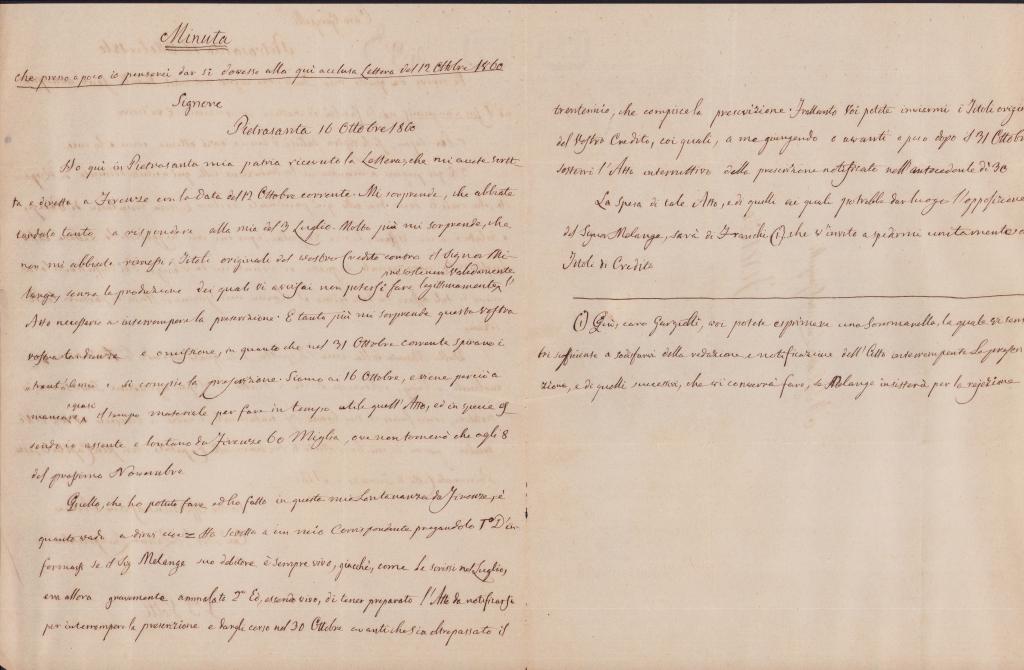 Minuta
che presso a poco io penserei dar si dovesse alla qui acclusa Lettera del 12 Ottobre 1860
Signore
Pietrasanta 16 Ottobre 1860
Ho qui in Pietrasanta mia patria ricevuto la Lettera, che mi avete scrit-
ta, e diretta a Firenze con la data del 12 Ottobre corrente. Mi sorprende, che abbiate
tardato tanto a rispondere alla mia del 3 Luglio. Molto più mi sorprende, che
non mi abbiate rimessi i Titoli originali del vostro Credito contro il Signor Me-
lange, senza la produzione dei quali vi avvisai non potersi fare legittimamente, né sostenere validamente l'
Atto necessario a interrompere la prescrizione. E tanto più mi sorprende questa vostra
vostra tardanza e omissione, in quanto che nel 31 Ottobre corrente spirano i
e si compie la prescrizione. Siamo ai 16 Ottobre, e viene perciò a
mancare quasi il tempo materiale per fare in tempo utile quell'Atto, ed in specie es-
sendo io assente e lontano da Firenze 60 Miglia, ove non tornerò che agli 8
del prossimo Novembre
Quello, che ho potuto fare ed ho fatto in questa mia Lontananza da Firenze, è
quanto vado a dirvi Ho scritto a un mio Corrispondente pregandolo 1º D'in-
formarsi se il Sig Melange suo debitore è sempre vivo, giacché, come le scrissi nel Luglio,
era allora gravemente ammalato 2º Ed, essendo vivo, di tener preparato l'Atto da notificarsi
per interrompere la prescrizione e dargli corso nel 30 Ottobre avanti che sia oltrepassato il
trentennio, che compisce la prescrizione. Frattanto Voi potete inviarmi i Titoli origin
del Vostro Credito, coi quali, a me giungendo o avanti o poco dopo il 31 Ottobr
sostenere l'Atto interruttivo della prescrizione notificato nell'antecedente dì 30
La Spesa di tale Atto, e di quelli ai quali potrebbe dar luogo l'opposizione
del Signor Melange, sarà di Franchi (1) che v'invito a spedirmi unitamente a
Titoli di Credito
(1) Qui, caro Garzolli, voi potete esprimere una Sommarella, la quale vi sem
bri sufficiente a sodisfarvi della redazione e notificazione dell'Atto interrompente La prescri
zione, e di quelli successivi, che vi converrà fare, se Melange insisterà per la rejezione